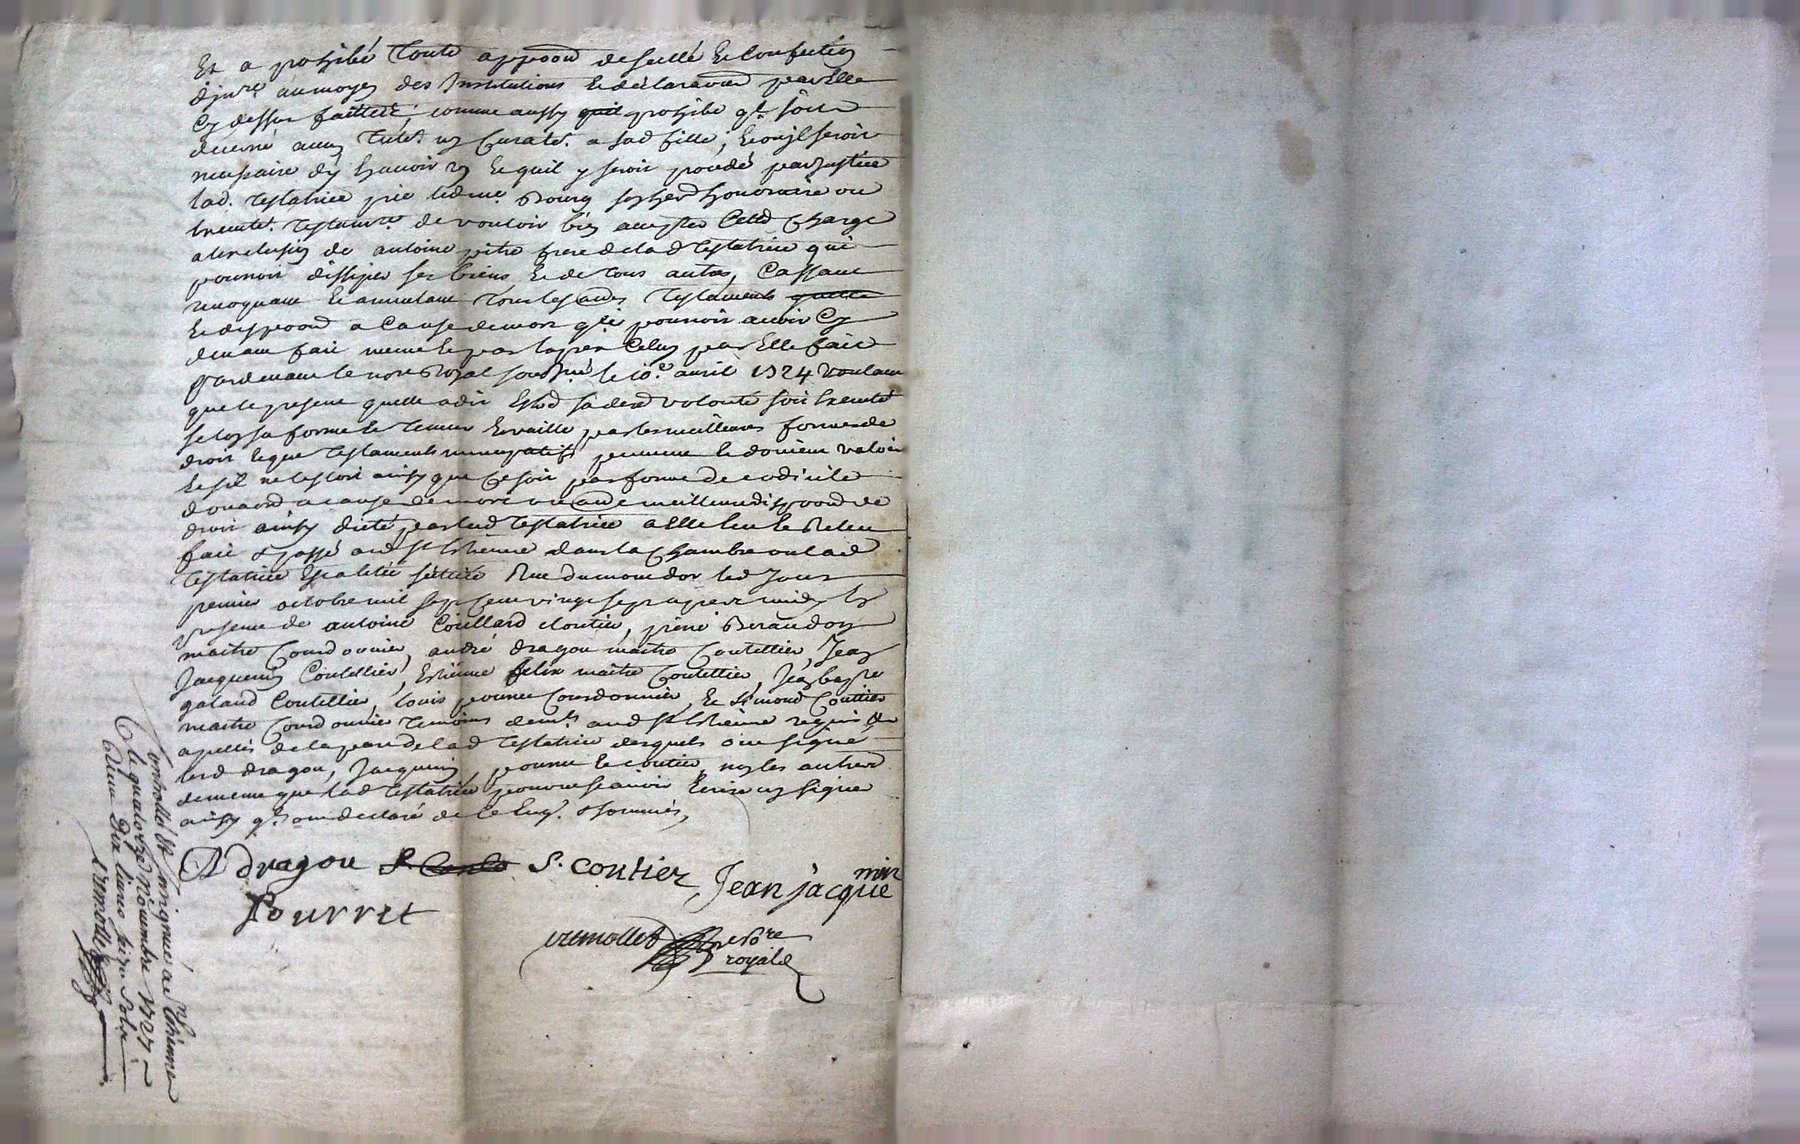 Et a prohibé toute appoõn de scellé et confection
d'inre au moyen des institutions et déclaraõn par elle
cy dessus faitte comme aussy quil prohibe ql soit
decerné aucun tuter ny curater a sad fille, et ou il seroit
necessaire dy en avoir un et quil y seroit procédé par justice
lad. testatrice prie led me Bourg son her honoraire ou
exécuter testamre de vouloir bien accepter cette charge
a lexclusion de antoine pitre frere de lad testatrice qui
pourroit dissiper ses biens et de tous autres, cassant
revoquant et annulant tous les autes testaments quelle
et disppoõn a cause de mort qle pourroit avoir cy
devant fait meme et par exprès celuy par elle fait
pardevant le nore royal soussné le 10e avril 1724 voulant
que le present quelle a dit estre sa dere volonté soit executé
selon sa forme et teneur et vaille par les meilleures formes de
droit et que testaments nuncupatifs peuvent et doivent valoir
et sil ne lestoit ainsy que ce soit par forme de codicile
donaõn a cause de mort ou aute meilleure disppoõn de
droit ainsy dicté par lad testatrice a elle leu et releu
fait & passé aud st Estienne dans la chambre ou lad
testatrice est alitée scituée Rue du mont dor led jour
premier octobre mil sept cent vingt sept apres midy en
presence de antoine Couillard cloutier, piere Beraudon
maitre Cordonnier, andré dragou maitre Coutellier, Jean
Jacquemin Coutellier, Estienne felix maitre Coutellier, Jean bapte
galaud Coutellier, louis pourret Cordonnier, et simond Coutier
maitre Cordonnier temoins demts aud st Estienne requis &
apellés de la part de lad testatrice desquels ont signé
lesd dragou, Jacquemin pourret et coutier non les autres
de meme que lad testatrice pour ne scavoir Ecrire ny signer
ainsy qls ont declaré de ce enqs & sommés,
A dragou S. coutier Jean jacque
min
Pourret
cremollet nore
royal
Controllé et insignué a st Ethienne
le quatorze novembre 1727
Reçeu dix livres
cremollet